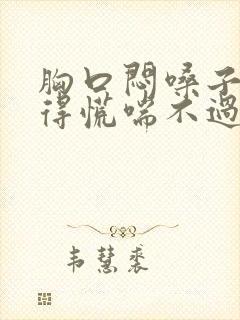 胸口悶嗓子
得慌喘不過
韦慧裘